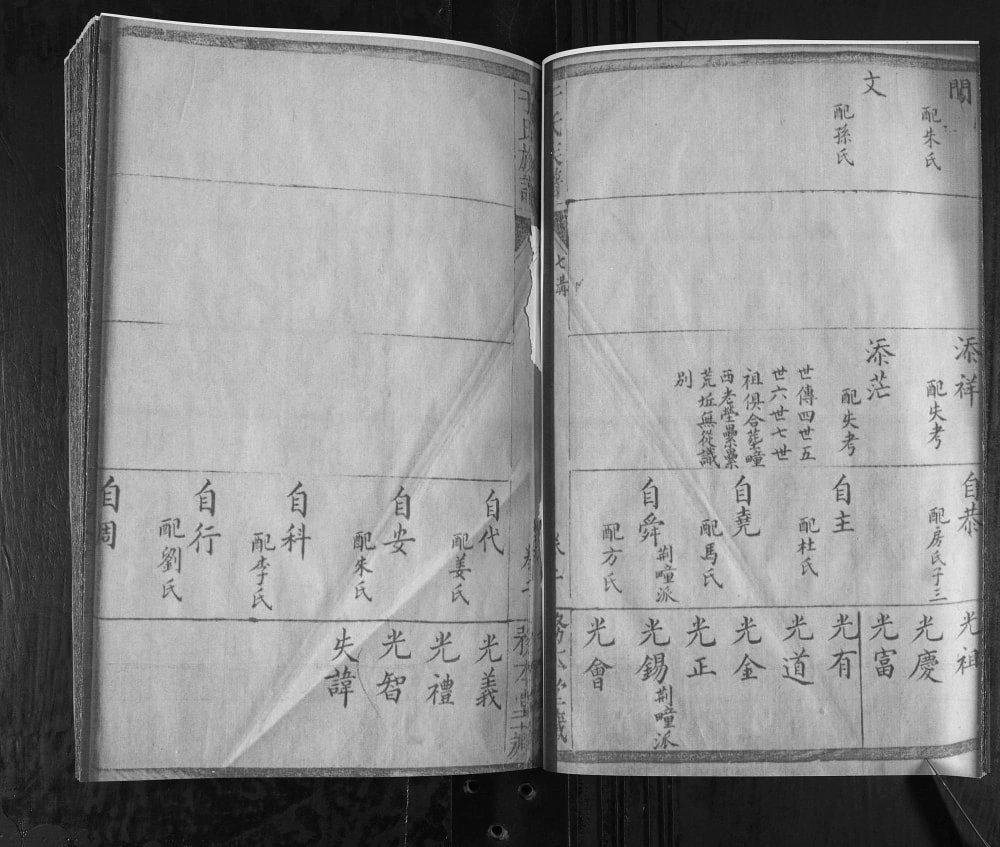 閣
配朱氏
文
配孫氏
添祥
配失考
添茫
配失考
世傳四世五
世六世七世
祖俱合塟疃
西老塋纍纍
荒坵無從識
別
自恭
配房氏子三
自主
配杜氏
自堯
配馬氏
自舜
荆疃派
配方氏
光祖
光慶
光富
光有
光道
光金
光正
光錫
荆疃派
光會
七溝
氏族譜
自代
配姜氏
自安
配朱氏
自科
配李氏
自行
配劉氏
自周
光義
光禮
光智
失諱